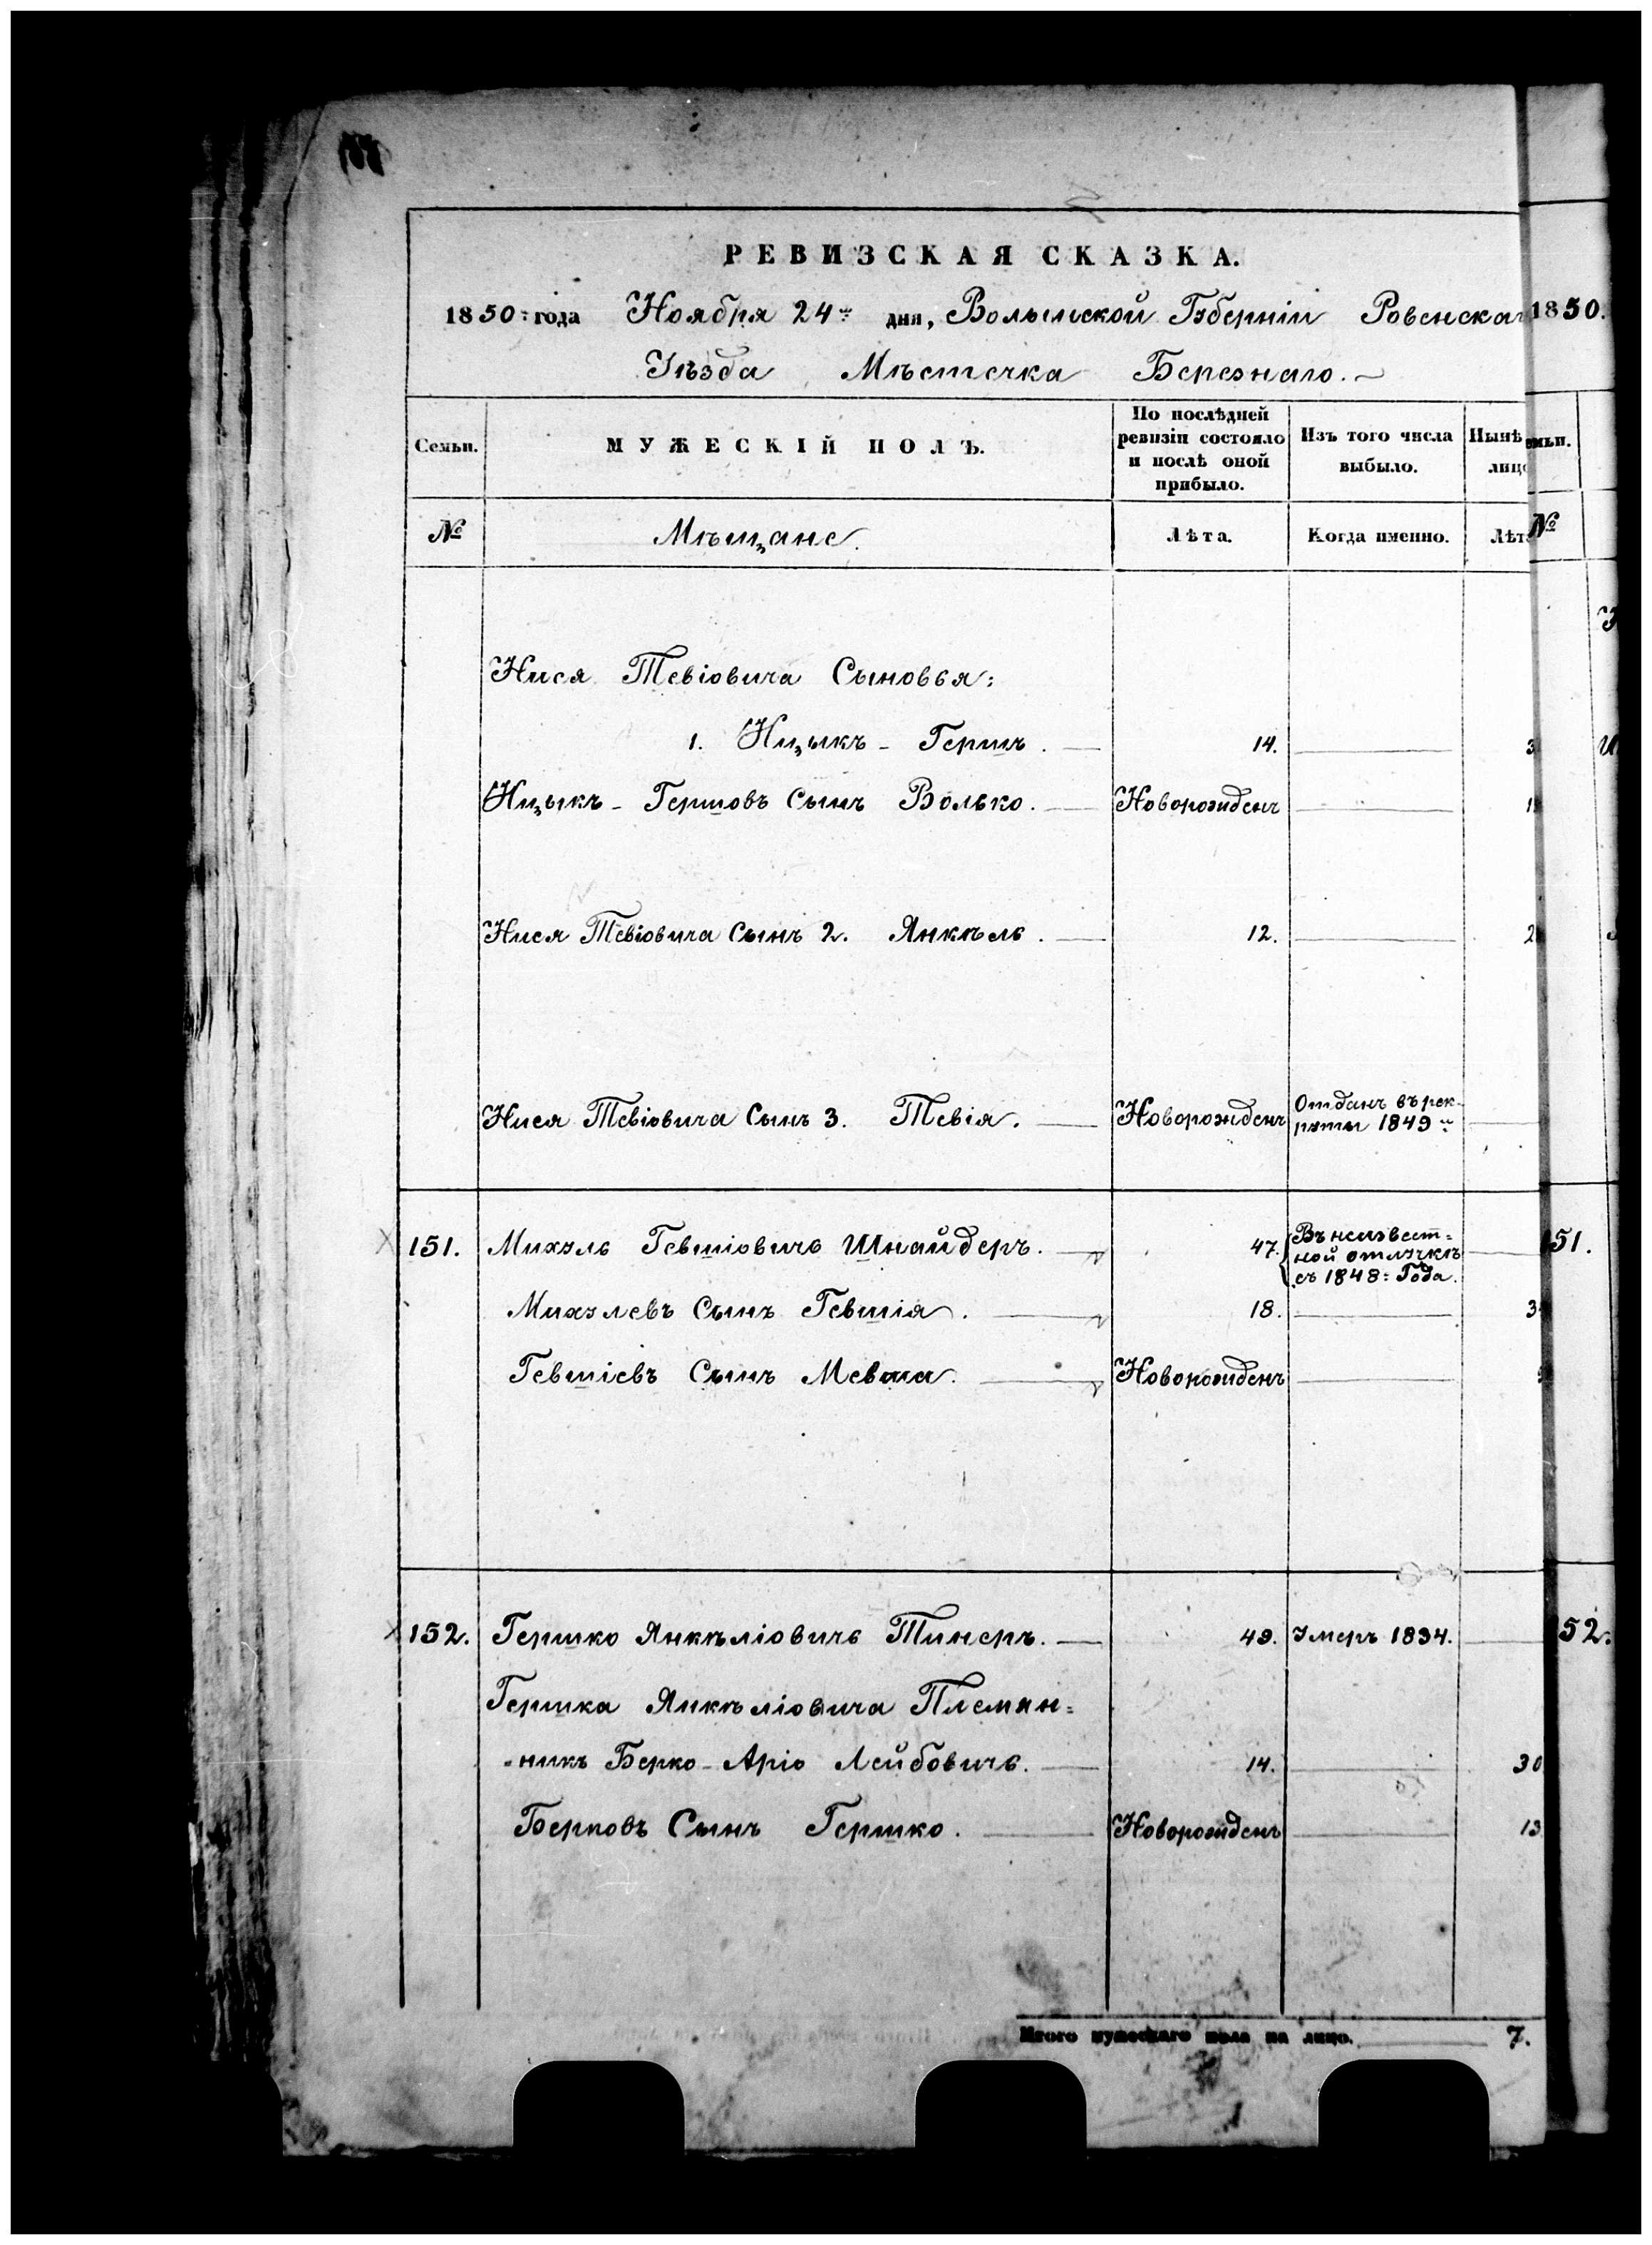 РЕВИЗСКАЯ СКАЗКА.
1850: года Ноября 24го дня, Волынской Губерніи Ровенскаг
Уѣзда Мѣстечка Березнаго.
Семьи. МУЖЕСКІЙ ПОЛЪ. По послѣдней ревизіи состояло и послѣ оной прибыло. Изъ того числа выбыло. Нынѣ лицо
№ Мѣщане. Лѣта. Когда именно. Лѣт
Нися Тевіовича Сыновья:
1. Ицыкъ - Гершъ. 14.
Ицыкъ - Гершовъ Сынъ Волько. Новорожденъ
Нися Тевіовича Сынъ 2. Янкѣль. 12. 2
Нися Тевіовича Сынъ 3. Тевія. Новорожденъ Отданъ въ рек-
руты 1849го
151. Михэль Гевшіовичъ Шнайдеръ. 47. Въ неизвест=
ной отлучкѣ
съ 1848: Года.
Михэлевъ Сынъ Гевшія. 18. 3
Гевшіевъ Сынъ Мевша. Новорожденъ
152. Гершко Янкѣліовичъ Тинеръ. 49. Умеръ 1834.
Гершка Янкѣліовича Племян=
=никъ Берко-Аріо Лейбовичъ. 14. 30
Берковъ Сынъ Гершко. Новорожденъ 13
Итого мужескаго пола на лицо. 7.
1850.
емьи.
№
151.
152.